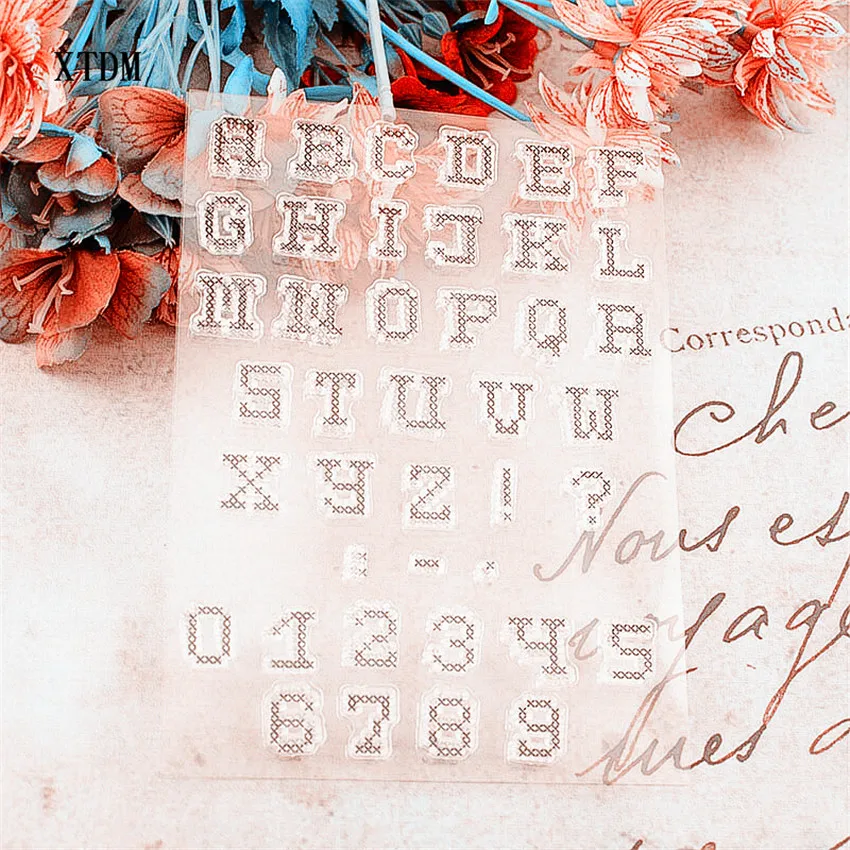 XTDM
A B C D E F
G H I J K L
M N O P Q R
S T U V W
X Y Z ! ?
: - .
0 1 2 3 4 5
6 7 8 9
Corresponda
che
Nous es
voyage
ques